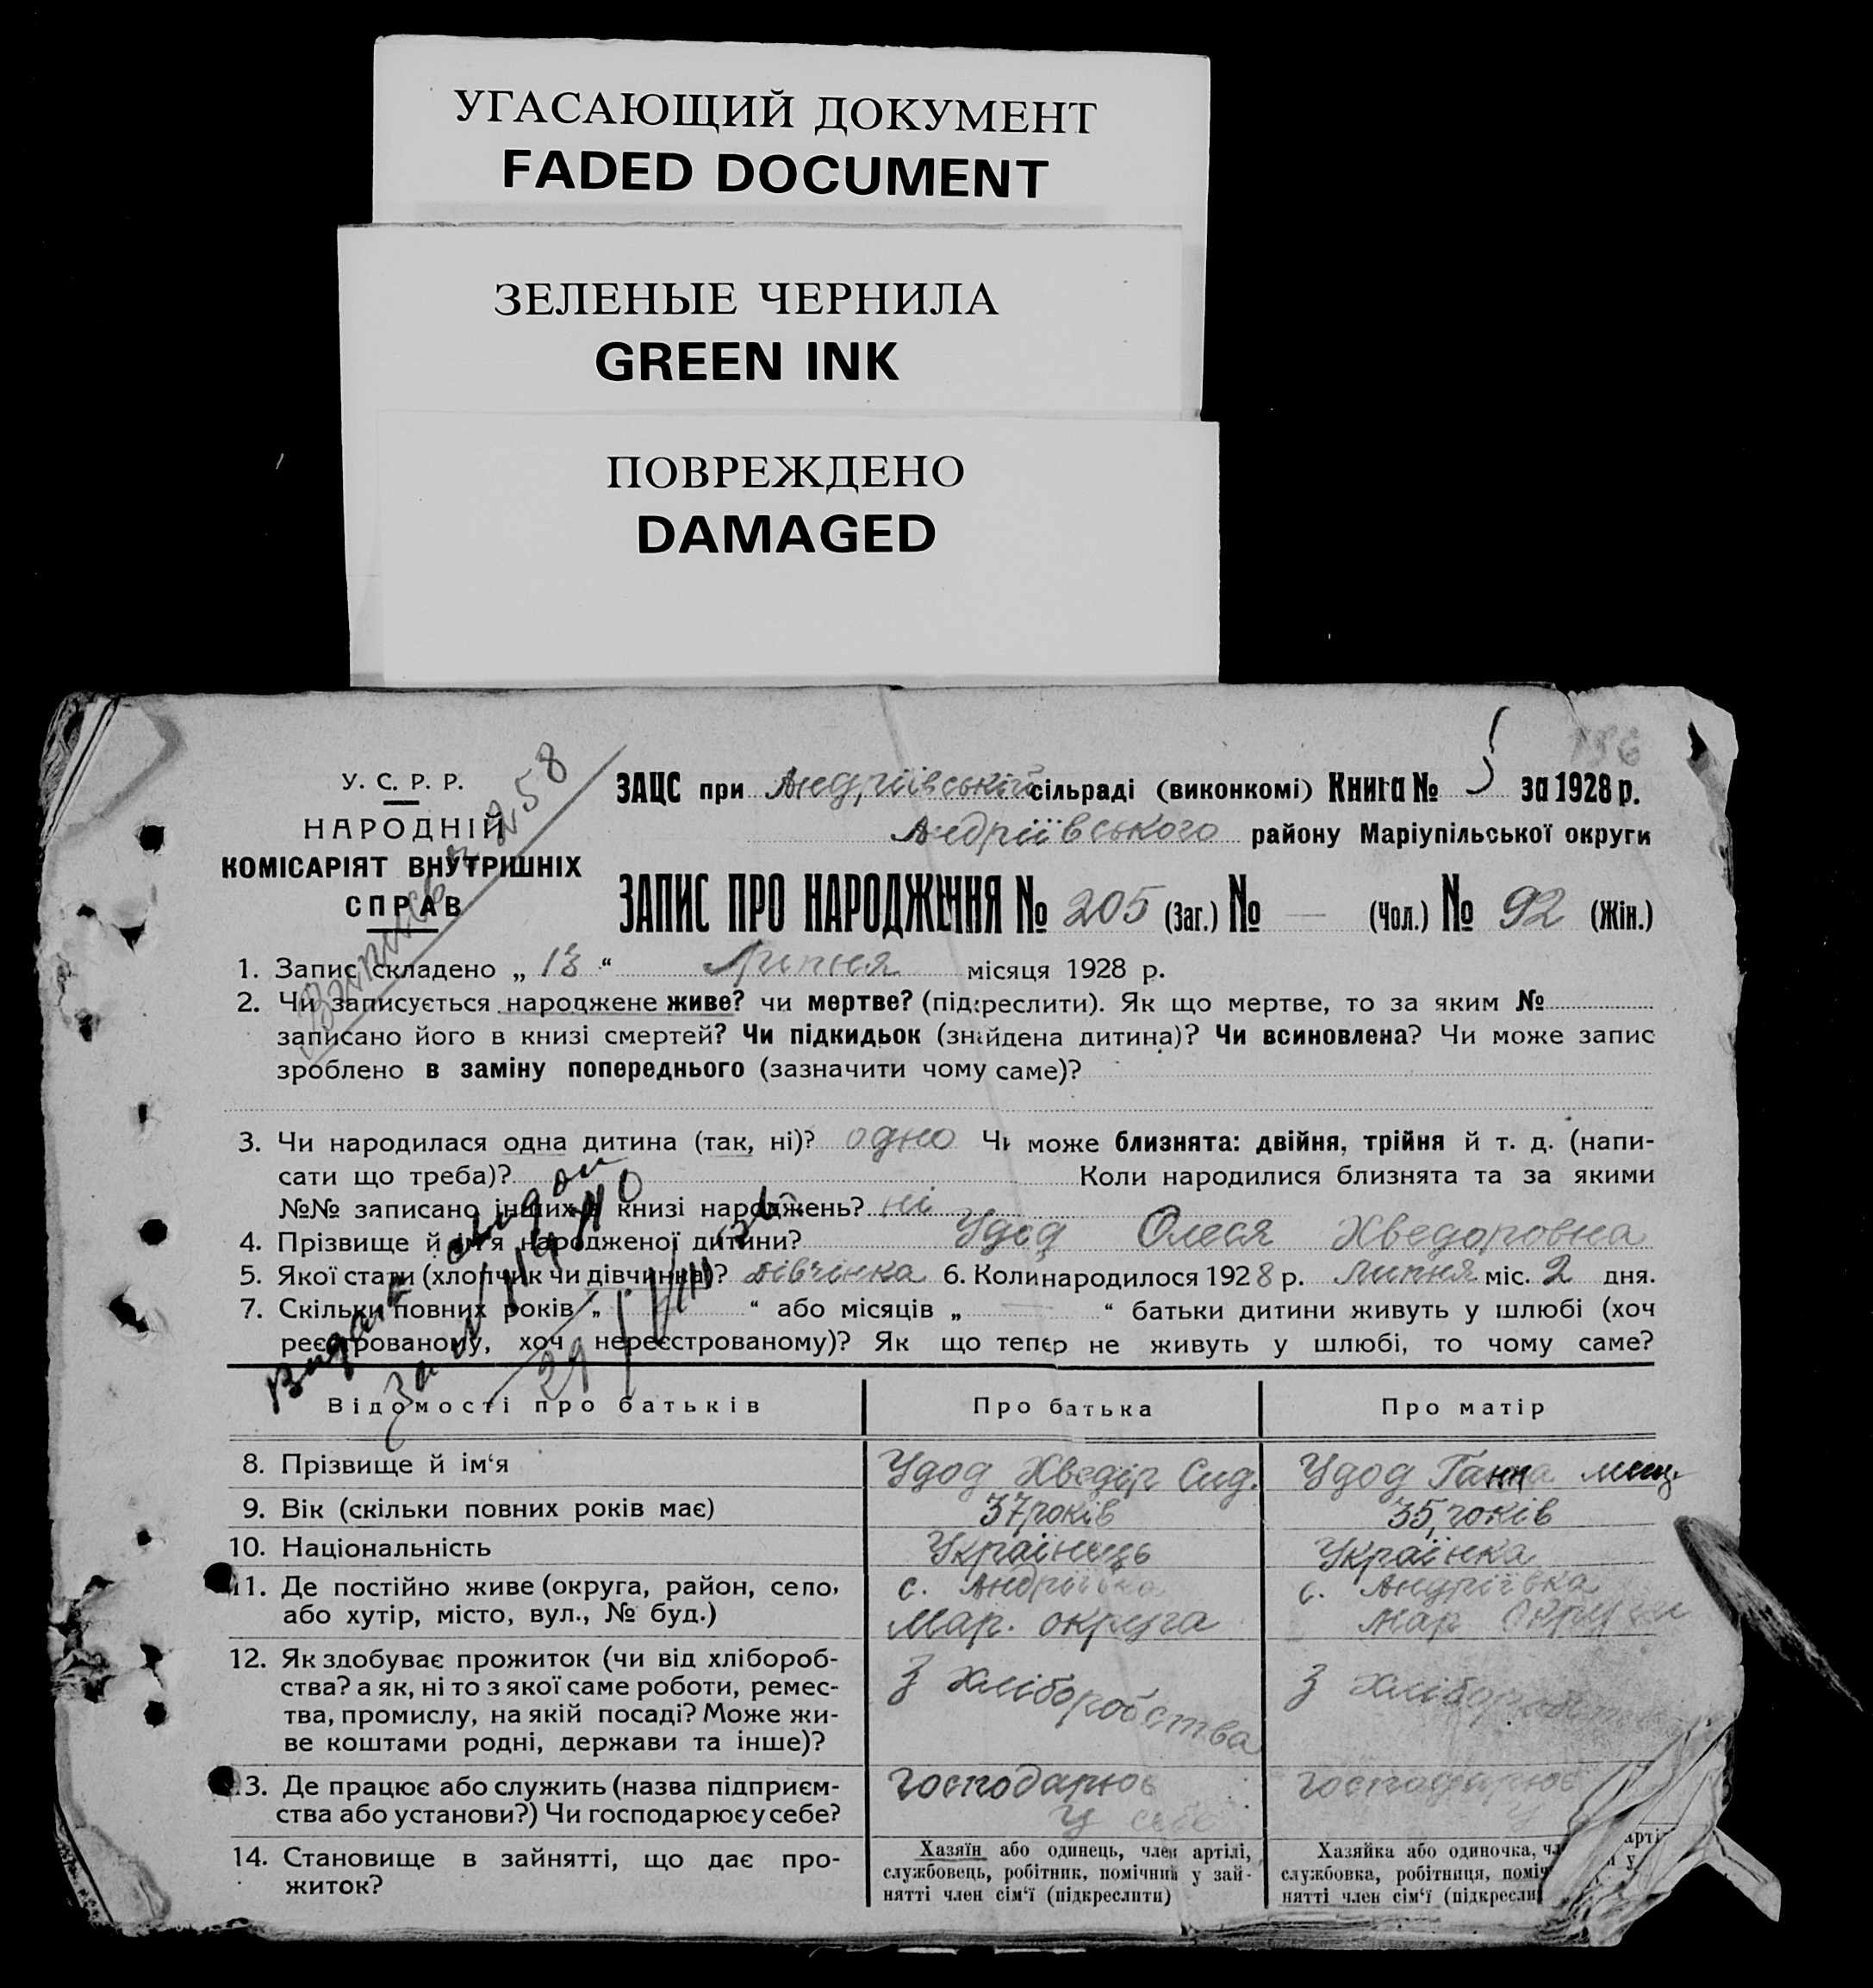 УГАСАЮЩИЙ ДОКУМЕНТ
FADED DOCUMENT
ЗЕЛЕНЫЕ ЧЕРНИЛА
GREEN INK
ПОВРЕЖДЕНО
DAMAGED
156
У. С. Р. Р.
НАРОДНІЙ
КОМІСАРІЯТ ВНУТРІШНІХ
СПРАВ
N 58
ЗАЦС при Андріївській сільраді (виконкомі) Книга № 5 за 1928 р.
Андріївського району Маріупільської округи
ЗАПИС ПРО НАРОДЖЕННЯ № 205 (Заг.) № — (Чол.) № 92 (Жін.)
1. Запис складено „ 13 “ Липня місяця 1928 р.
2. Чи записується народжене живе? чи мертве? (підкреслити). Як що мертве, то за яким №
записано його в книзі смертей? Чи підкидьок (знайдена дитина)? Чи всиновлена? Чи може запис
зроблено в заміну попереднього (зазначити чому саме)?
3. Чи народилася одна дитина (так, ні)? одно Чи може близнята: двійня, трійня й т. д. (напи-
сати що треба)? Коли народилися близнята та за якими
№№ записано інших в книзі народжень? ні
4. Прізвище й ім'я народженої дитини? Удод Олеся Хведоровна
5. Якої стати (хлопчик чи дівчинка)? дівчінка 6. Коли народилося 1928 р. липня міс. 2 дня.
7. Скільки повних років „ “ або місяців „ — “ батьки дитини живуть у шлюбі (хоч
реєстрованому, хоч нереєстрованому)? Як що тепер не живуть у шлюбі, то чому саме?
Відомості про батьків Про батька Про матір
8. Прізвище й ім'я Удод Хведір Сид. Удод Ганна
9. Вік (скільки повних років має) 37 років 35 років
10. Національність Українець Українка
11. Де постійно живе (округа, район, село, с. Андріївка с. Андріївка
або хутір, місто, вул., № буд.) Мар. округа Мар округи
12. Як здобуває прожиток (чи від хлібороб-
ства? а як, ні то з якої саме роботи, ремес- З хліборобства З хліборобства
тва, промислу, на якій посаді? Може жи-
ве коштами родні, держави та інше)?
13. Де працює або служить (назва підприєм- господарює господарює
ства або установи?) Чи господарює у себе? у себе у
14. Становище в зайнятті, що дає про-
житок?
Хазяїн або одинець, член артілі,
службовець, робітник, помічний у зай-
нятті член сім'ї (підкреслити)
Хазяйка або одиночка,
службовка, робітниця,
нятті член сім'ї